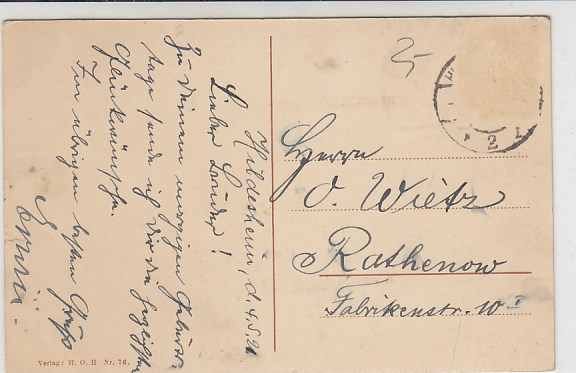 Hildesheim, d. 4.5.21
Lieber Bruder!
Zu Deinem morgigen Geburts-
tage sende ich Dir die herzlichsten
Glückwünsche.
Im übrigen besten Gruß
Erwin.
25
Herrn
O. Wietz
Rathenow
Fabrikenstr. 10 I
* 2 1
Verlag: H. O. H. Nr. 76.